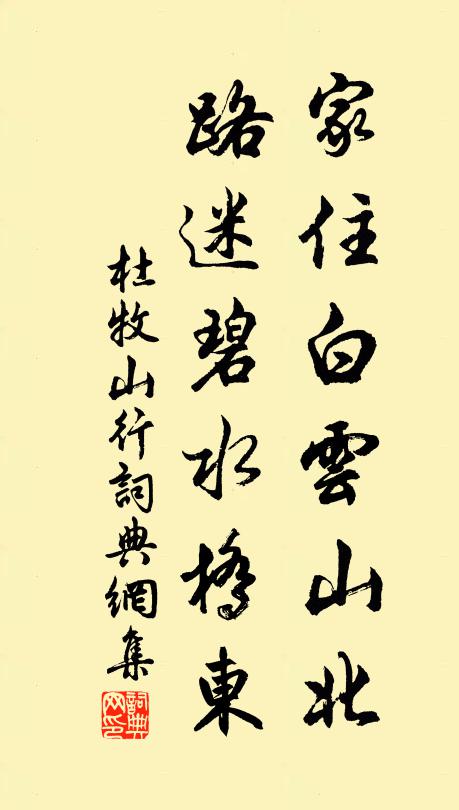 家住白雲山北
路迷碧水橋東
杜牧山行詞典網集
詞典
网印